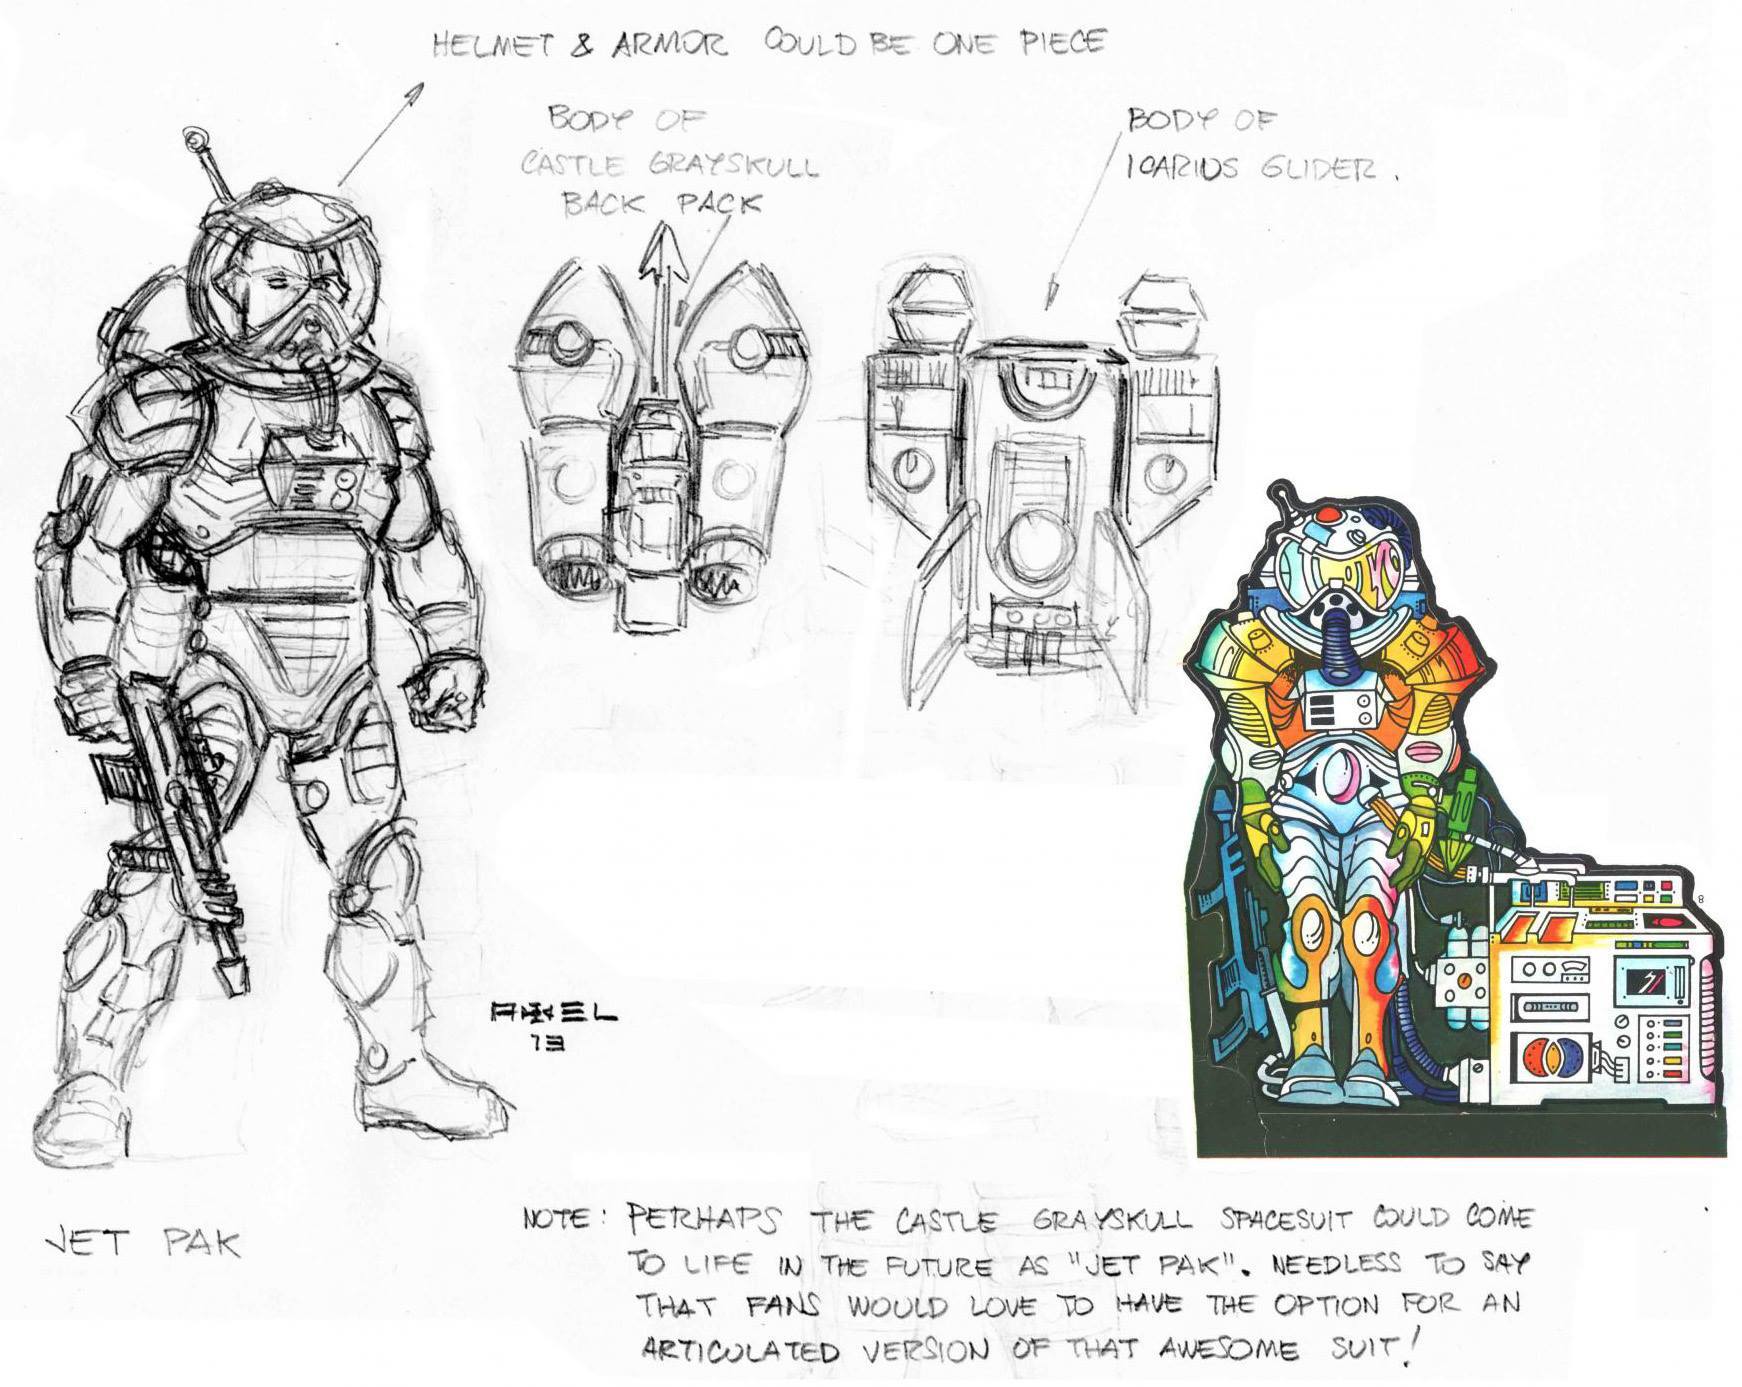 HELMET & ARMOR COULD BE ONE PIECE
BODY OF
CASTLE GRAYSKULL
BACK PACK
BODY OF
ICARIUS GLIDER.
8
AXEL
13
JET PAK
NOTE: PERHAPS THE CASTLE GRAYSKULL SPACESUIT COULD COME
TO LIFE IN THE FUTURE AS "JET PAK". NEEDLESS TO SAY
THAT FANS WOULD LOVE TO HAVE THE OPTION FOR AN
ARTICULATED VERSION OF THAT AWESOME SUIT!